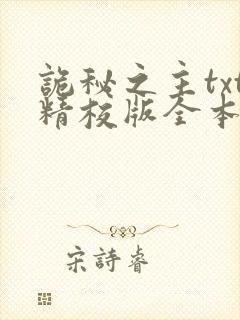 詭秘之主txt
精校版全本
宋詩睿